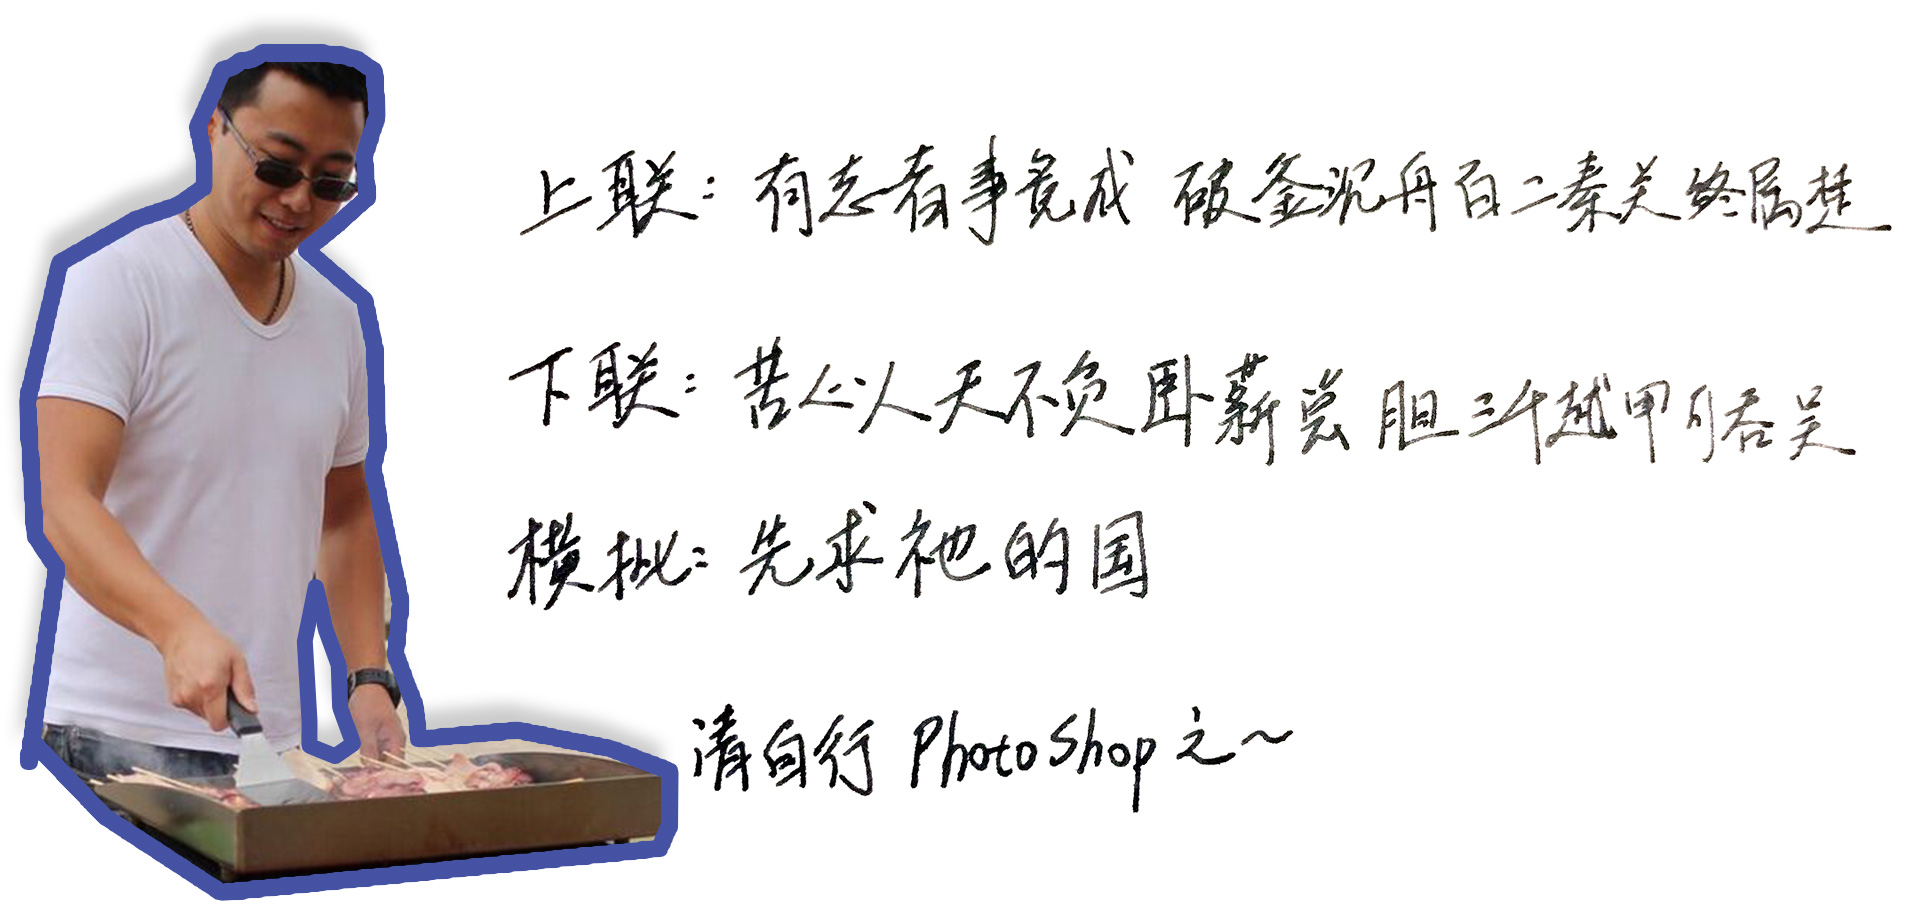 上联：有志者事竟成 破釜沉舟百二秦关终属楚
下联：苦心人天不负卧薪尝胆三千越甲可吞吴
横批：先求祂的国
请自行 PhotoShop 之~